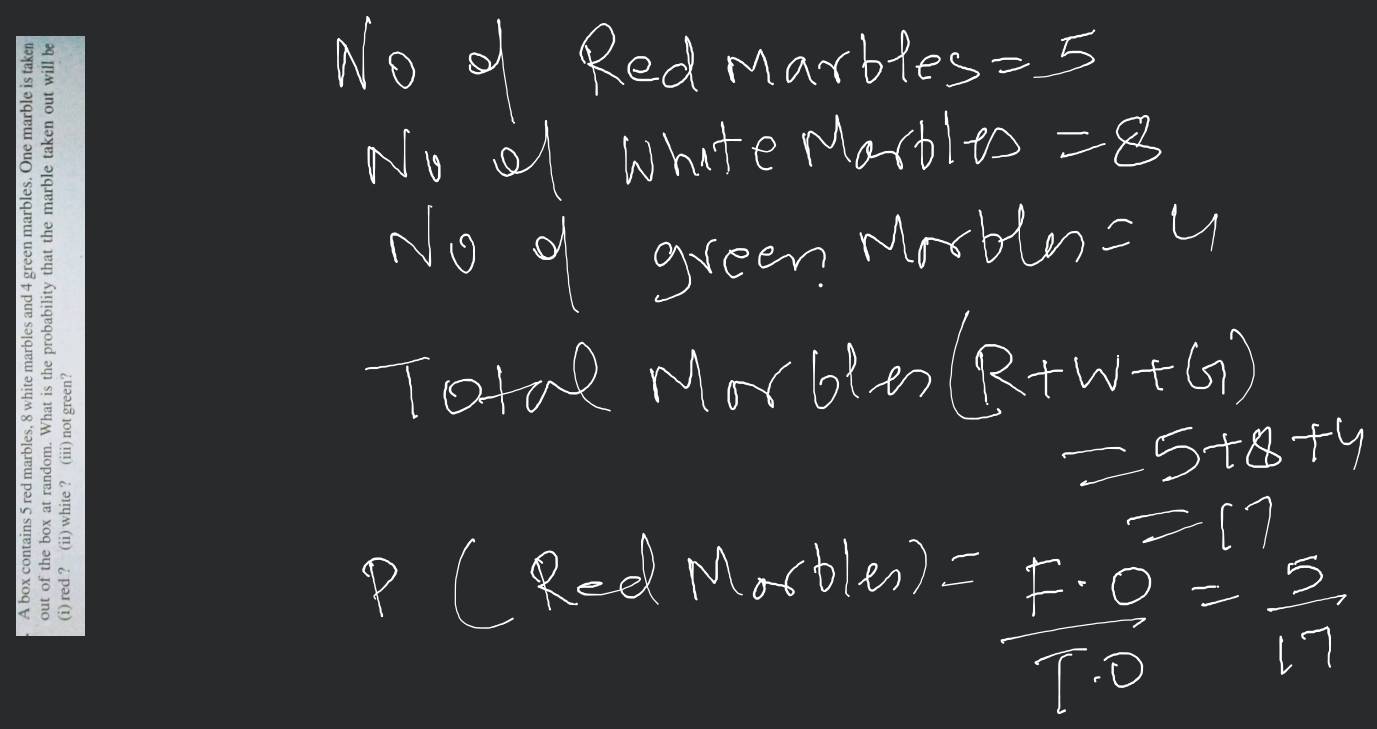 A box contains 5 red marbles, 8 white marbles and 4 green marbles. One marble is taken
out of the box at random. What is the probability that the marble taken out will be
(i) red ? (ii) white ? (iii) not green?
No of Red Marbles = 5
No of White Marbles = 8
No of green Marbles = 4
Total Marbles (R+W+G)
= 5+8+4
= 17
P (Red Marbles) = F.O/T.O = 5/17